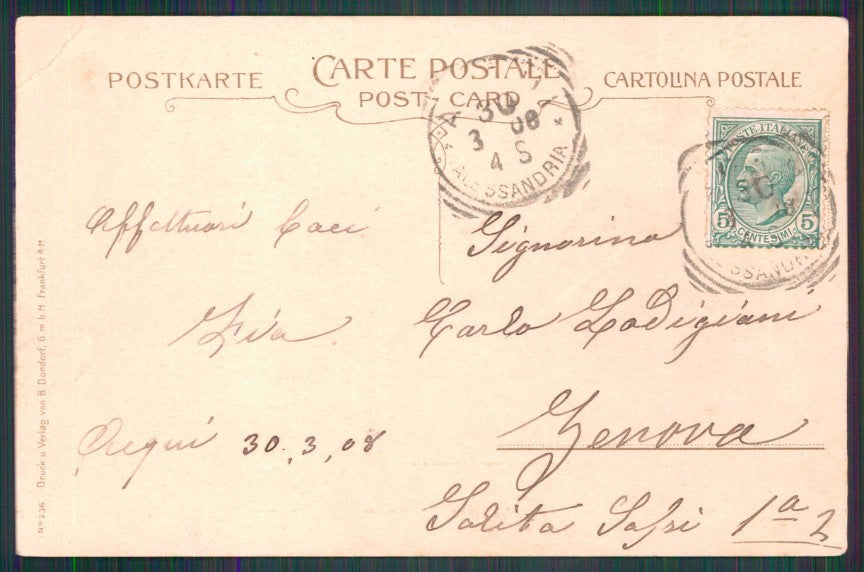 CARTE POSTALE
POSTKARTE
POST CARD
CARTOLINA POSTALE
30
3 08
4 S
ALESSANDRIA
POSTE ITALIANE
5 CENTESIMI 5
Affettuosi baci
Zia
Acqui 30.3.08
Signorino
Carlo Lodigiani
Genova
Salita 1a 2
No 236 Druck u. Verlag von B. Dondorf, G. m. b. H. Frankfurt a/M